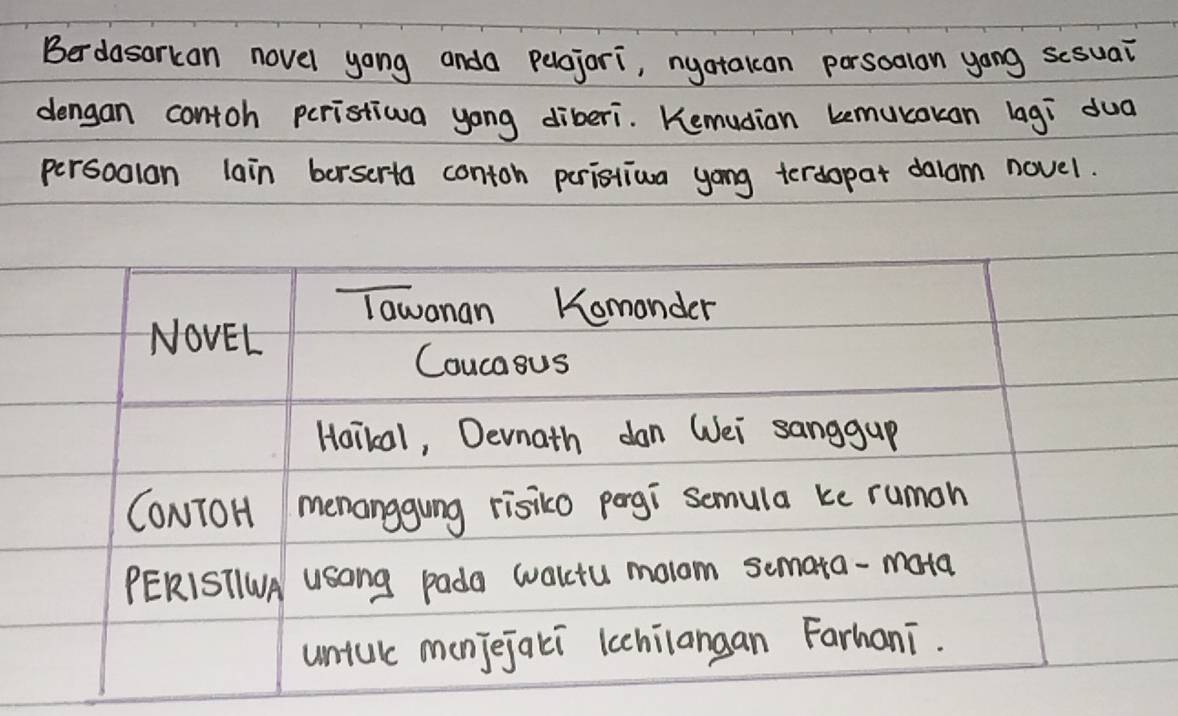 Berdasarkan novel yang anda pelajari, nyatakan persoalan yang sesuai
dengan contoh peristiwa yang diberi. Kemudian kemukakan lagi dua
persoalan lain berserta contoh peristiwa yang terdapat dalam novel.
NOVEL
Tawanan Komander
Caucasus
CONTOH
PERISTIWA
Haikal, Devnath dan Wei sanggup
menanggung risiko pergi semula ke rumah
usang pada waktu malam semata-mata
untuk menjejaki kehilangan Farhani.